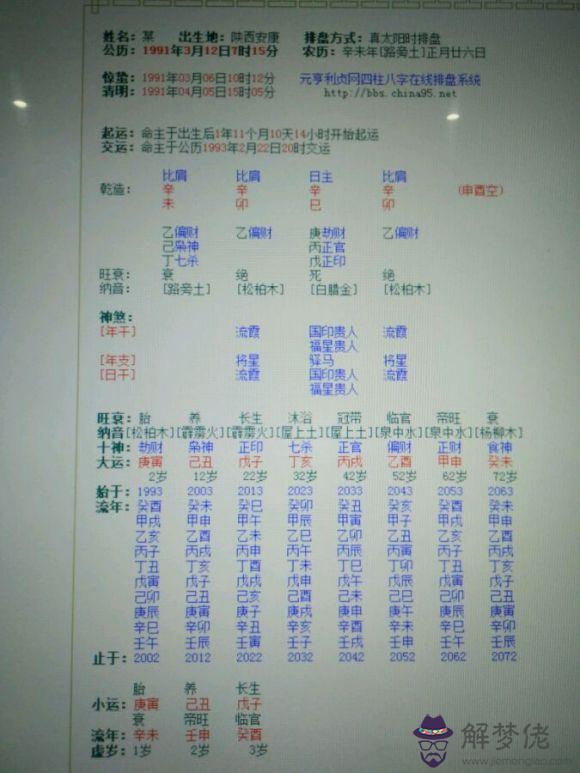 姓名：某 出生地：陕西安康 排盘方式：真太阳时排盘
公历：1991年3月12日7时15分 农历：辛未年[路旁土]正月廿六日
惊蛰：1991年03月06日10时12分 元亨利贞网四柱八字在线排盘系统
清明：1991年04月05日15时05分 http://bbs.china95.net
起运：命主于出生后1年11个月10天14小时开始起运
交运：命主于公历1993年2月22日20时交运
比肩 比肩 日主 比肩
乾造： 辛 辛 辛 辛 (申酉空)
未 卯 巳 卯
乙偏财 乙偏财 庚劫财 乙偏财
己枭神 丙正官
丁七杀 戊正印
旺衰： 衰 绝 死 绝
纳音： [路旁土] [松柏木] [白腊金] [松柏木]
神煞：
[年干] 流霞 国印贵人 流霞
福星贵人
[年支] 将星 驿马 将星
[日干] 流霞 国印贵人 流霞
福星贵人
旺衰： 胎 养 长生 沐浴 冠带 临官 帝旺 衰
纳音：[松柏木][霹雳火][霹雳火][屋上土][屋上土][泉中水][泉中水][杨柳木]
十神： 劫财 枭神 正印 七杀 正官 偏财 正财 食神
大运： 庚寅 己丑 戊子 丁亥 丙戌 乙酉 甲申 癸未
2岁 12岁 22岁 32岁 42岁 52岁 62岁 72岁
始于： 1993 2003 2013 2023 2033 2043 2053 2063
流年： 癸酉 癸未 癸巳 癸卯 癸丑 癸亥 癸酉 癸未
甲戌 甲申 甲午 甲辰 甲寅 甲子 甲戌 甲申
乙亥 乙酉 乙未 乙巳 乙卯 乙丑 乙亥 乙酉
丙子 丙戌 丙申 丙午 丙辰 丙寅 丙子 丙戌
丁丑 丁亥 丁酉 丁未 丁巳 丁卯 丁丑 丁亥
戊寅 戊子 戊戌 戊申 戊午 戊辰 戊寅 戊子
己卯 己丑 己亥 己酉 己未 己巳 己卯 己丑
庚辰 庚寅 庚子 庚戌 庚申 庚午 庚辰 庚寅
辛巳 辛卯 辛丑 辛亥 辛酉 辛未 辛巳 辛卯
壬午 壬辰 壬寅 壬子 壬戌 壬申 壬午 壬辰
止于： 2002 2012 2022 2032 2042 2052 2062 2072
胎 养 长生
小运： 庚寅 己丑 戊子
衰 帝旺 临官
流年： 辛未 壬申 癸酉
虚岁： 1岁 2岁 3岁
解梦佬
www.jiemenglao.com